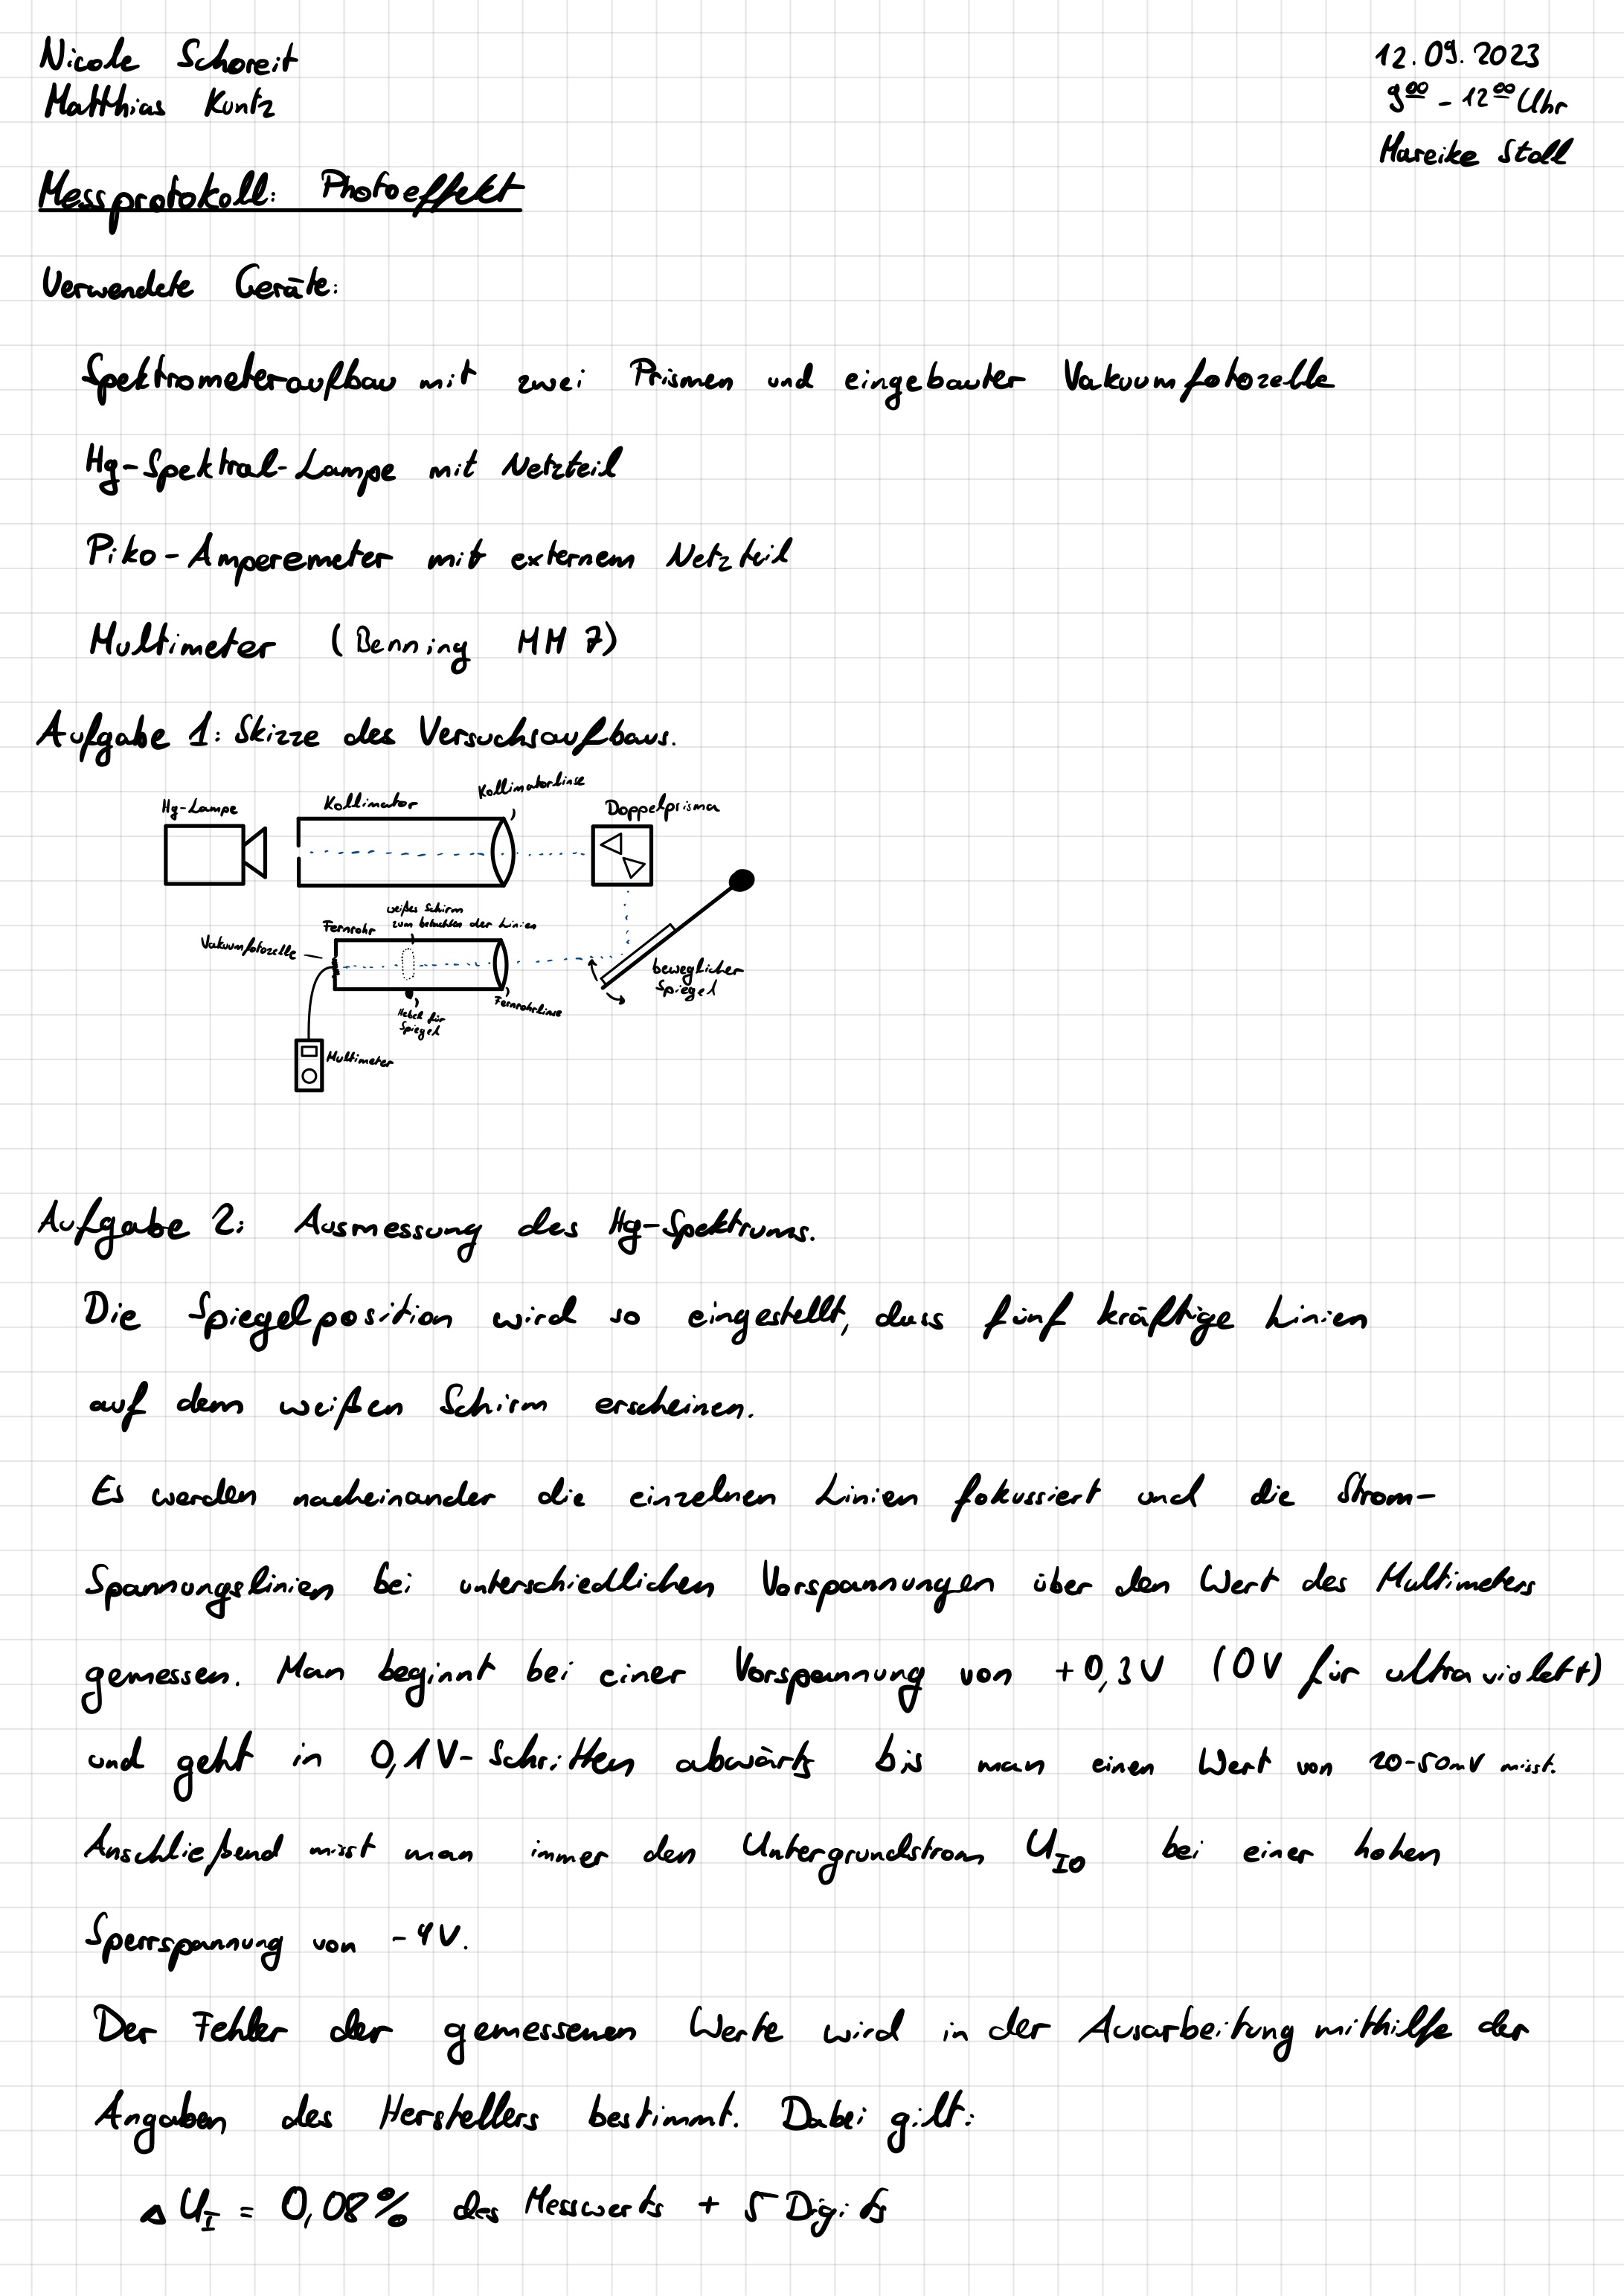 Nicole Schoreit
Matthias Kuntz
12.09.2023
9⁰⁰ - 12⁰⁰ Uhr
Mareike Stoll
Messprotokoll: Photoeffekt
Verwendete Geräte:
Spektrometeraufbau mit zwei Prismen und eingebauter Vakuumfotozelle
Hg-Spektral-Lampe mit Netzteil
Piko-Amperemeter mit externem Netzteil
Multimeter (Benning MM 7)
Aufgabe 1: Skizze des Versuchsaufbaus.
Hg-Lampe
Kollimator
Kollimatorlinse
Doppelprisma
weißes Schirm
zum betrachten der Linien
Fernrohr
Vakuumfotozelle
beweglicher
Spiegel
Hebel für
Spiegel
Fernrohrlinse
Multimeter
Aufgabe 2: Ausmessung des Hg-Spektrums.
Die Spiegelposition wird so eingestellt, dass fünf kräftige Linien
auf dem weißen Schirm erscheinen.
Es werden nacheinander die einzelnen Linien fokussiert und die Strom-
Spannungslinien bei unterschiedlichen Vorspannungen über den Wert des Multimeters
gemessen. Man beginnt bei einer Vorspannung von +0,3V (0V für ultraviolett)
und geht in 0,1V-Schritten abwärts bis man einen Wert von 20-50mV misst.
Anschließend misst man immer den Untergrundstrom U_I0 bei einer hohen
Sperrspannung von -4V.
Der Fehler der gemessenen Werte wird in der Ausarbeitung mithilfe der
Angaben des Herstellers bestimmt. Dabei gilt:
ΔU_I = 0,08% des Messwerts + 5 Digits